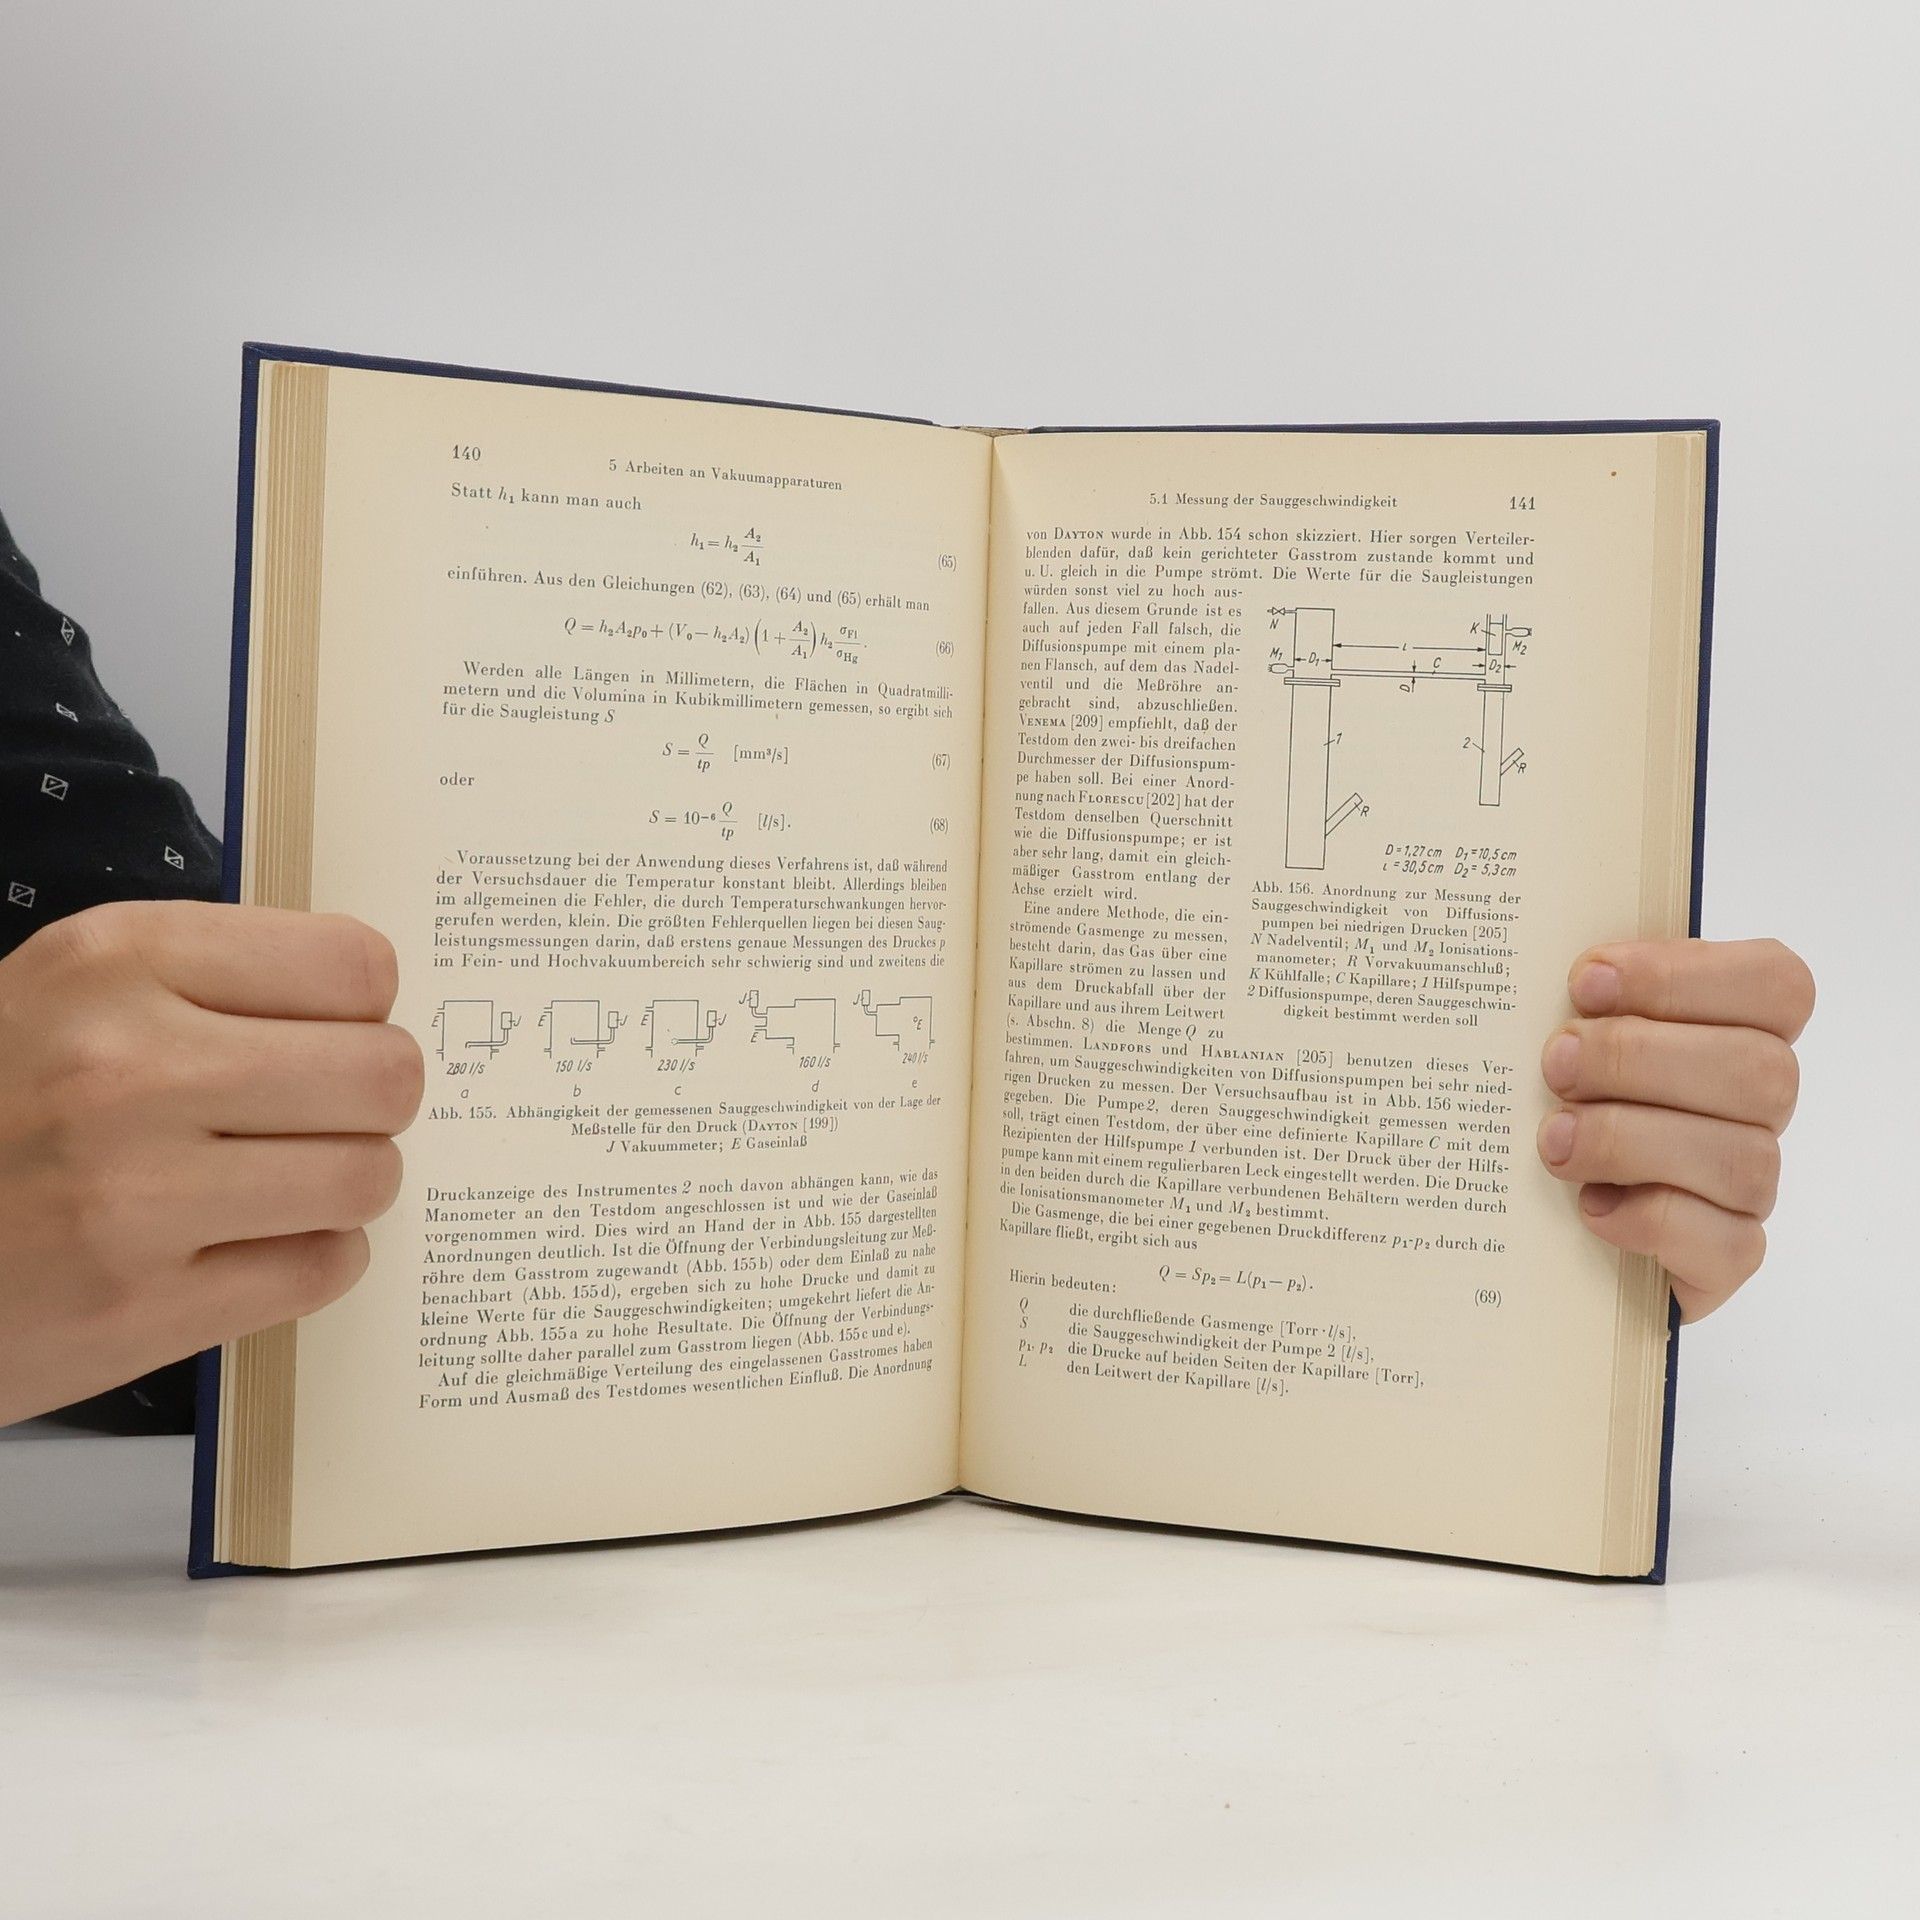 140
5 Arbeiten an Vakuumapparaturen
Statt h₁ kann man auch
h₁ = h₂ A₂/A₁ (65)
einführen. Aus den Gleichungen (62), (63), (64) und (65) erhält man
Q = h₂A₂p₀ + (V₀ − h₂A₂) (1 + A₂/A₁) h₂ σFl/σHg . (66)
Werden alle Längen in Millimetern, die Flächen in Quadratmilli-
metern und die Volumina in Kubikmillimetern gemessen, so ergibt sich
für die Saugleistung S
S = Q/tp [mm³/s] (67)
oder
S = 10⁻⁶ Q/tp [l/s]. (68)
Voraussetzung bei der Anwendung dieses Verfahrens ist, daß während
der Versuchsdauer die Temperatur konstant bleibt. Allerdings bleiben
im allgemeinen die Fehler, die durch Temperaturschwankungen hervor-
gerufen werden, klein. Die größten Fehlerquellen liegen bei diesen Saug-
leistungsmessungen darin, daß erstens genaue Messungen des Druckes p
im Fein- und Hochvakuumbereich sehr schwierig sind und zweitens die
E J E J E J J E J E
280 l/s 150 l/s 230 l/s 160 l/s 240 l/s
a b c d e
Abb. 155. Abhängigkeit der gemessenen Sauggeschwindigkeit von der Lage der
Meßstelle für den Druck (DAYTON [199])
J Vakuummeter; E Gaseinlaß
Druckanzeige des Instrumentes 2 noch davon abhängen kann, wie das
Manometer an den Testdom angeschlossen ist und wie der Gaseinlaß
vorgenommen wird. Dies wird an Hand der in Abb. 155 dargestellten
Anordnungen deutlich. Ist die Öffnung der Verbindungsleitung zur Meß-
röhre dem Gasstrom zugewandt (Abb. 155b) oder dem Einlaß zu nahe
benachbart (Abb. 155d), ergeben sich zu hohe Drucke und damit zu
kleine Werte für die Sauggeschwindigkeiten; umgekehrt liefert die An-
ordnung Abb. 155a zu hohe Resultate. Die Öffnung der Verbindungs-
leitung sollte daher parallel zum Gasstrom liegen (Abb. 155c und e).
Auf die gleichmäßige Verteilung des eingelassenen Gasstromes haben
Form und Ausmaß des Testdomes wesentlichen Einfluß. Die Anordnung
5.1 Messung der Sauggeschwindigkeit
141
von DAYTON wurde in Abb. 154 schon skizziert. Hier sorgen Verteiler-
blenden dafür, daß kein gerichteter Gasstrom zustande kommt und
u. U. gleich in die Pumpe strömt. Die Werte für die Saugleistungen
würden sonst viel zu hoch aus-
fallen. Aus diesem Grunde ist es
auch auf jeden Fall falsch, die
Diffusionspumpe mit einem pla-
nen Flansch, auf dem das Nadel-
ventil und die Meßröhre an-
gebracht sind, abzuschließen.
VENEMA [209] empfiehlt, daß der
Testdom den zwei- bis dreifachen
Durchmesser der Diffusionspum-
pe haben soll. Bei einer Anord-
nung nach FLORESCU [202] hat der
Testdom denselben Querschnitt
wie die Diffusionspumpe; er ist
aber sehr lang, damit ein gleich-
mäßiger Gasstrom entlang der
Achse erzielt wird.
Eine andere Methode, die ein-
strömende Gasmenge zu messen,
besteht darin, das Gas über eine
Kapillare strömen zu lassen und
aus dem Druckabfall über der
Kapillare und aus ihrem Leitwert
(s. Abschn. 8) die Menge Q zu
N K M₂
M₁ D₁ L C D₂
D
1 2
R
R
D = 1,27 cm D₁ = 10,5 cm
L = 30,5 cm D₂ = 5,3 cm
Abb. 156. Anordnung zur Messung der
Sauggeschwindigkeit von Diffusions-
pumpen bei niedrigen Drucken [205]
N Nadelventil; M₁ und M₂ Ionisations-
manometer; R Vorvakuumanschluß;
K Kühlfalle; C Kapillare; 1 Hilfspumpe;
2 Diffusionspumpe, deren Sauggeschwin-
digkeit bestimmt werden soll
bestimmen. LANDFORS und HABLANIAN [205] benutzen dieses Ver-
fahren, um Sauggeschwindigkeiten von Diffusionspumpen bei sehr nied-
rigen Drucken zu messen. Der Versuchsaufbau ist in Abb. 156 wieder-
gegeben. Die Pumpe 2, deren Sauggeschwindigkeit gemessen werden
soll, trägt einen Testdom, der über eine definierte Kapillare C mit dem
Rezipienten der Hilfspumpe 1 verbunden ist. Der Druck über der Hilfs-
pumpe kann mit einem regulierbaren Leck eingestellt werden. Die Drucke
in den beiden durch die Kapillare verbundenen Behältern werden durch
die Ionisationsmanometer M₁ und M₂ bestimmt.
Die Gasmenge, die bei einer gegebenen Druckdifferenz p₁-p₂ durch die
Kapillare fließt, ergibt sich aus
Q = Sp₂ = L(p₁ − p₂). (69)
Hierin bedeuten:
Q die durchfließende Gasmenge [Torr · l/s],
S die Sauggeschwindigkeit der Pumpe 2 [l/s],
p₁, p₂ die Drucke auf beiden Seiten der Kapillare [Torr],
L den Leitwert der Kapillare [l/s].